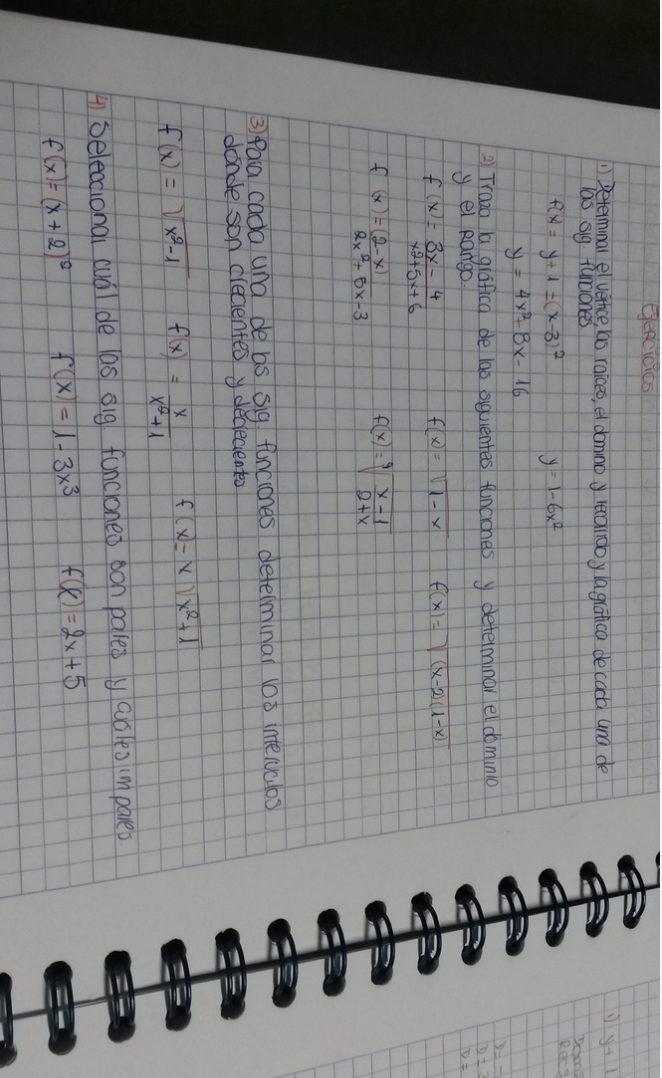 Ejercicios
1) Determinar el vértice, las raíces, el dominio y recorrido y la gráfica de cada una de
las sig funciones
f(x = y + 1 = (x-3)²
y = 1-6x²
y = 4x²+8x-16
2) Traza la gráfica de las siguientes funciones y determinar el dominio
y el rango.
f(x) = 3x-4 / x²+5x+6
f(x) = √1-x
f(x) = √(x-2)(1-x)
f(x) = (2-x) / 2x²+5x-3
f(x) = √x-1 / 2+x
3) Para cada una de las sig. funciones determinar los intervalos
donde son crecientes y decrecientes
f(x) = √x²-1
f(x) = x / x²+1
f(x = x √x²+1
4) Seleccionar cuál de las sig funciones son pares y cuáles impares.
f(x) = (x+2)²
f(x) = 1-3x³
f(x) = 2x+5
1) y+1